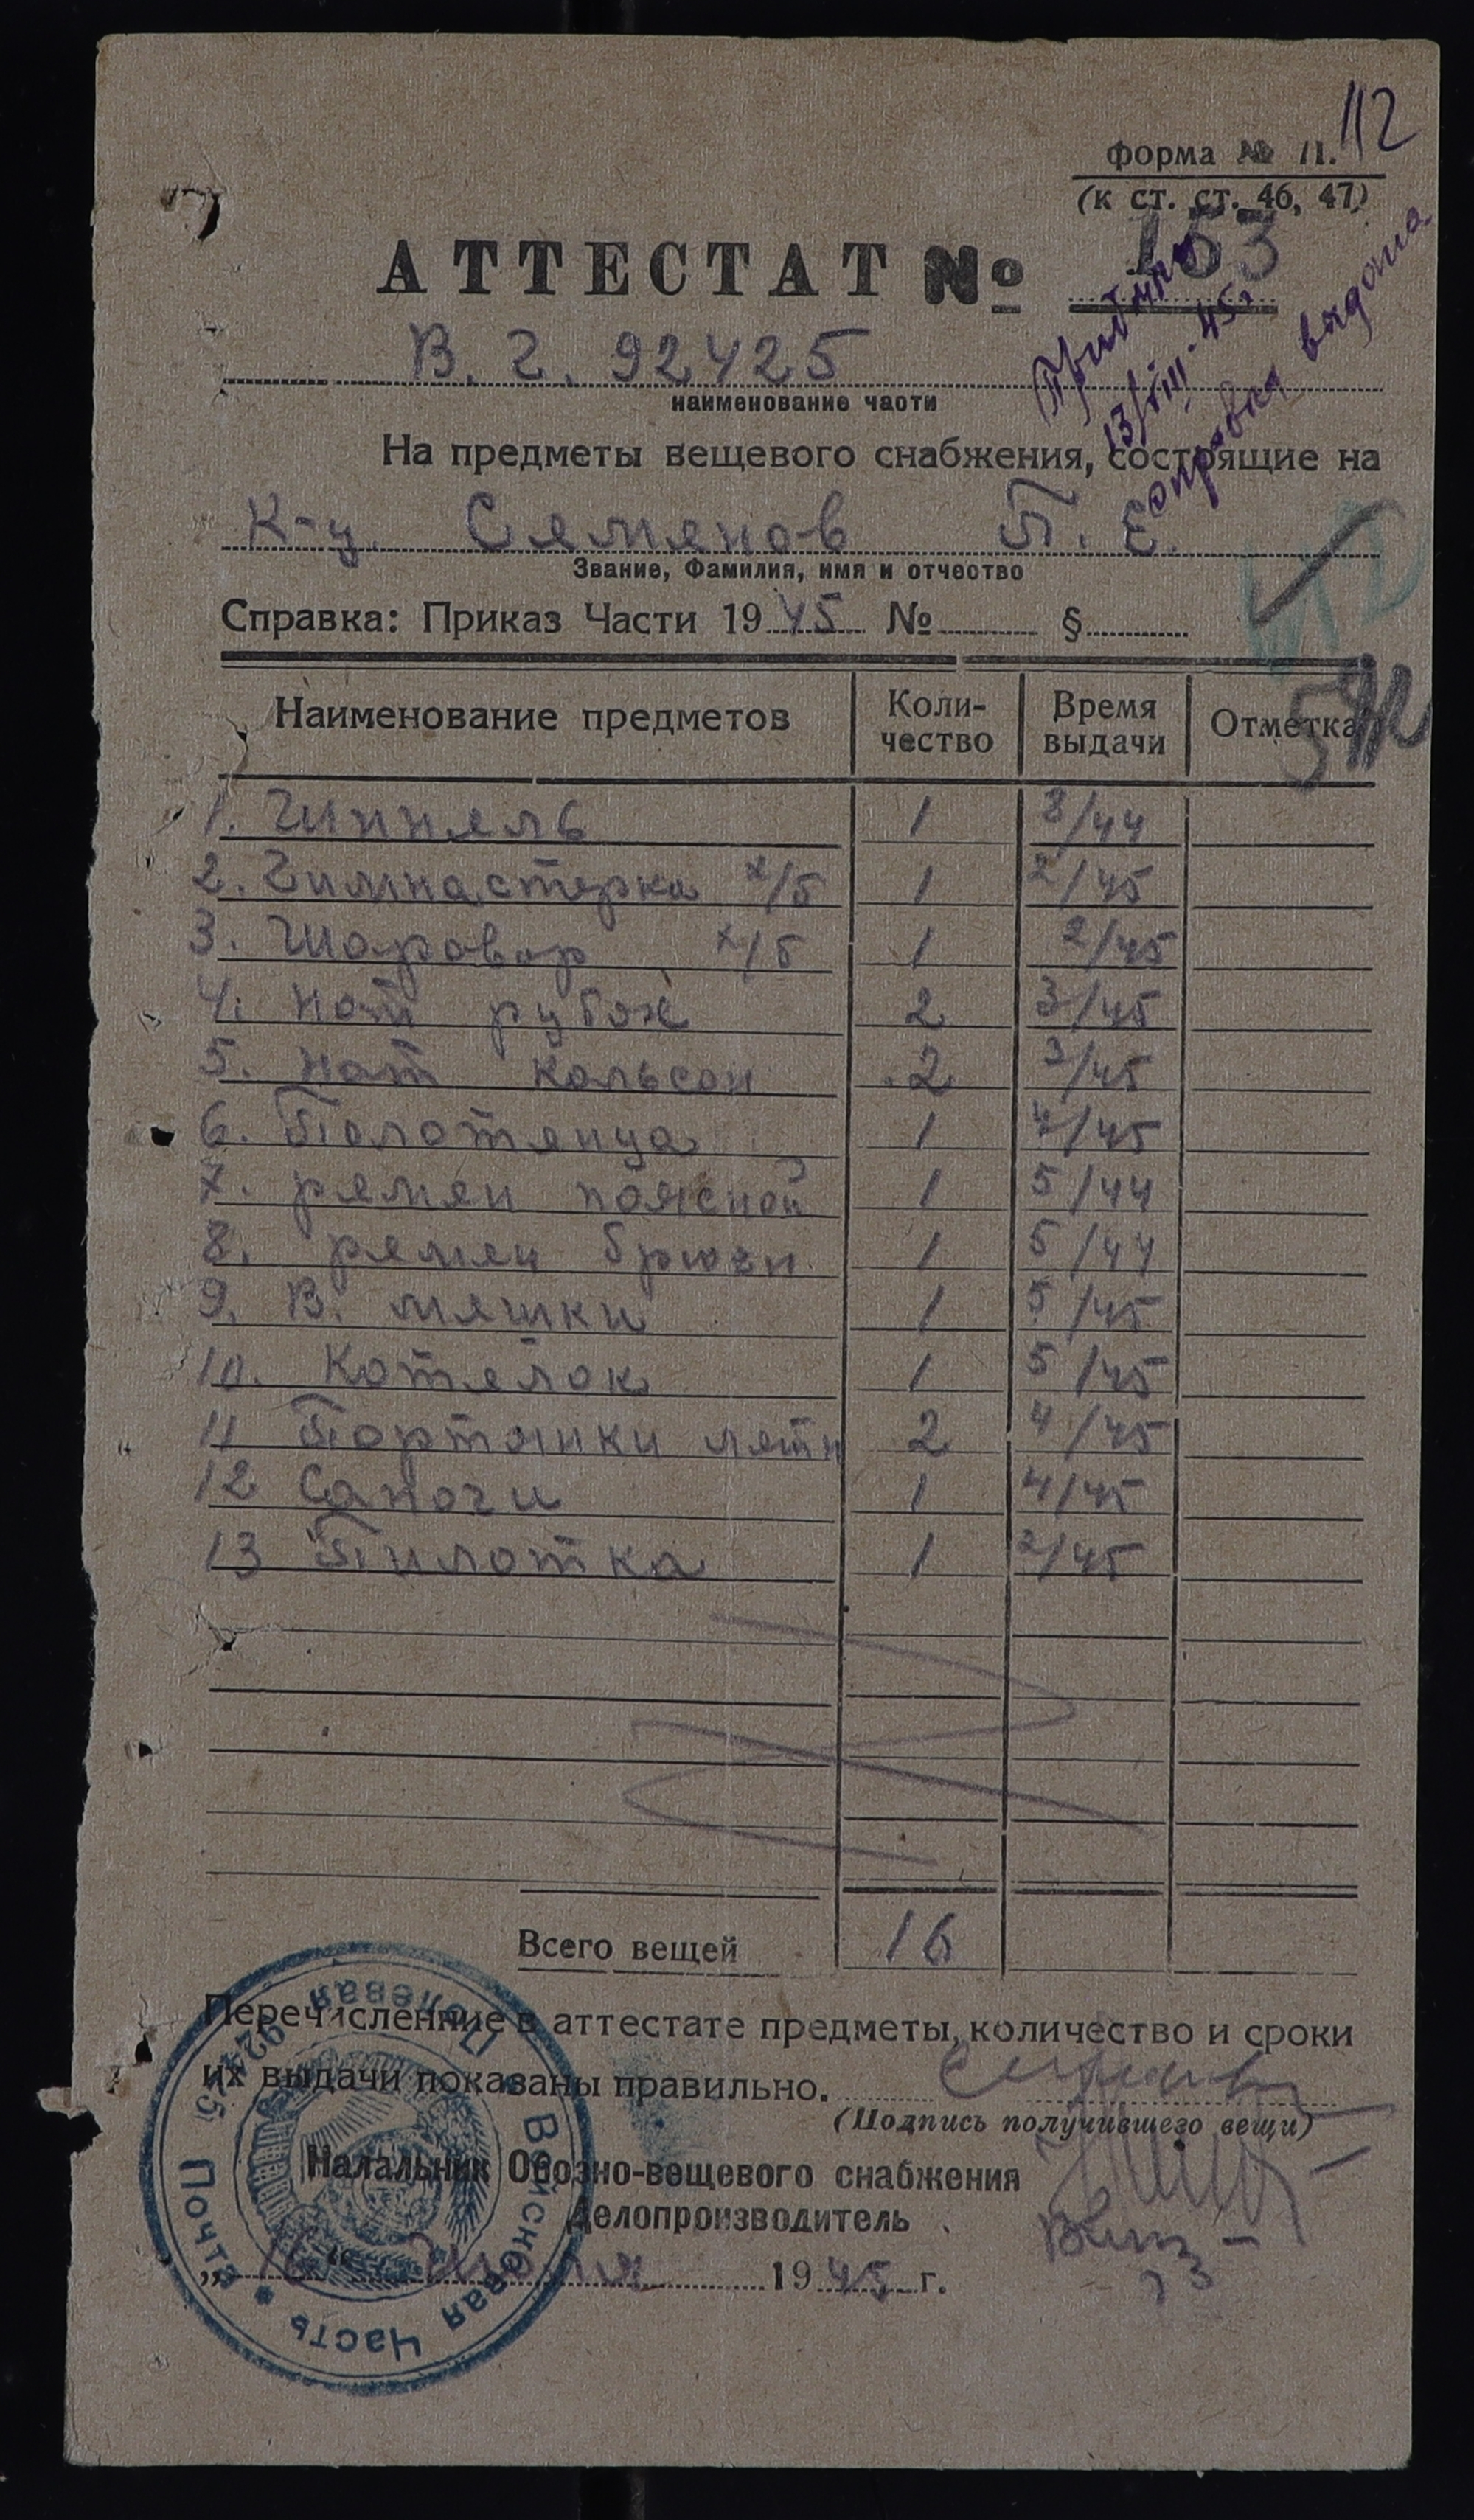 112
форма № 11.
(к ст. ст. 46, 47)
АТТЕСТАТ № 153
В. Ч. 92425
наименование части
Прибыл
13/VIII-45г
справка выдана
На предметы вещевого снабжения, состоящие на
К-ц Семянов П. Е.
Звание, Фамилия, имя и отчество
Справка: Приказ Части 1945 № §
Наименование предметов Коли-чество Время выдачи Отметка
1. Шинняль 1 3/44
2. Гимнастерка х/б 1 2/45
3. Шаровар х/б 1 2/45
4. Нат рубах 2 3/45
5. Нат кальсон 2 3/45
6. Полотянца 1 4/45
7. рямян поясной 1 5/44
8. рямян брючн 1 5/44
9. В. мяшки 1 5/45
10. Котялок 1 5/45
11 Портянки лятн 2 4/45
12 Сапоги 1 4/45
13 Пилотка 1 2/45
Всего вещей 16
Перечисленние в аттестате предметы, количество и сроки
их выдачи показаны правильно.
(Подпись получившего вещи)
Налальник Обозно-вещевого снабжения
Делопроизводитель
„16“ Июля 1945 г.
Полевая Почта 92425 Войсковая Часть